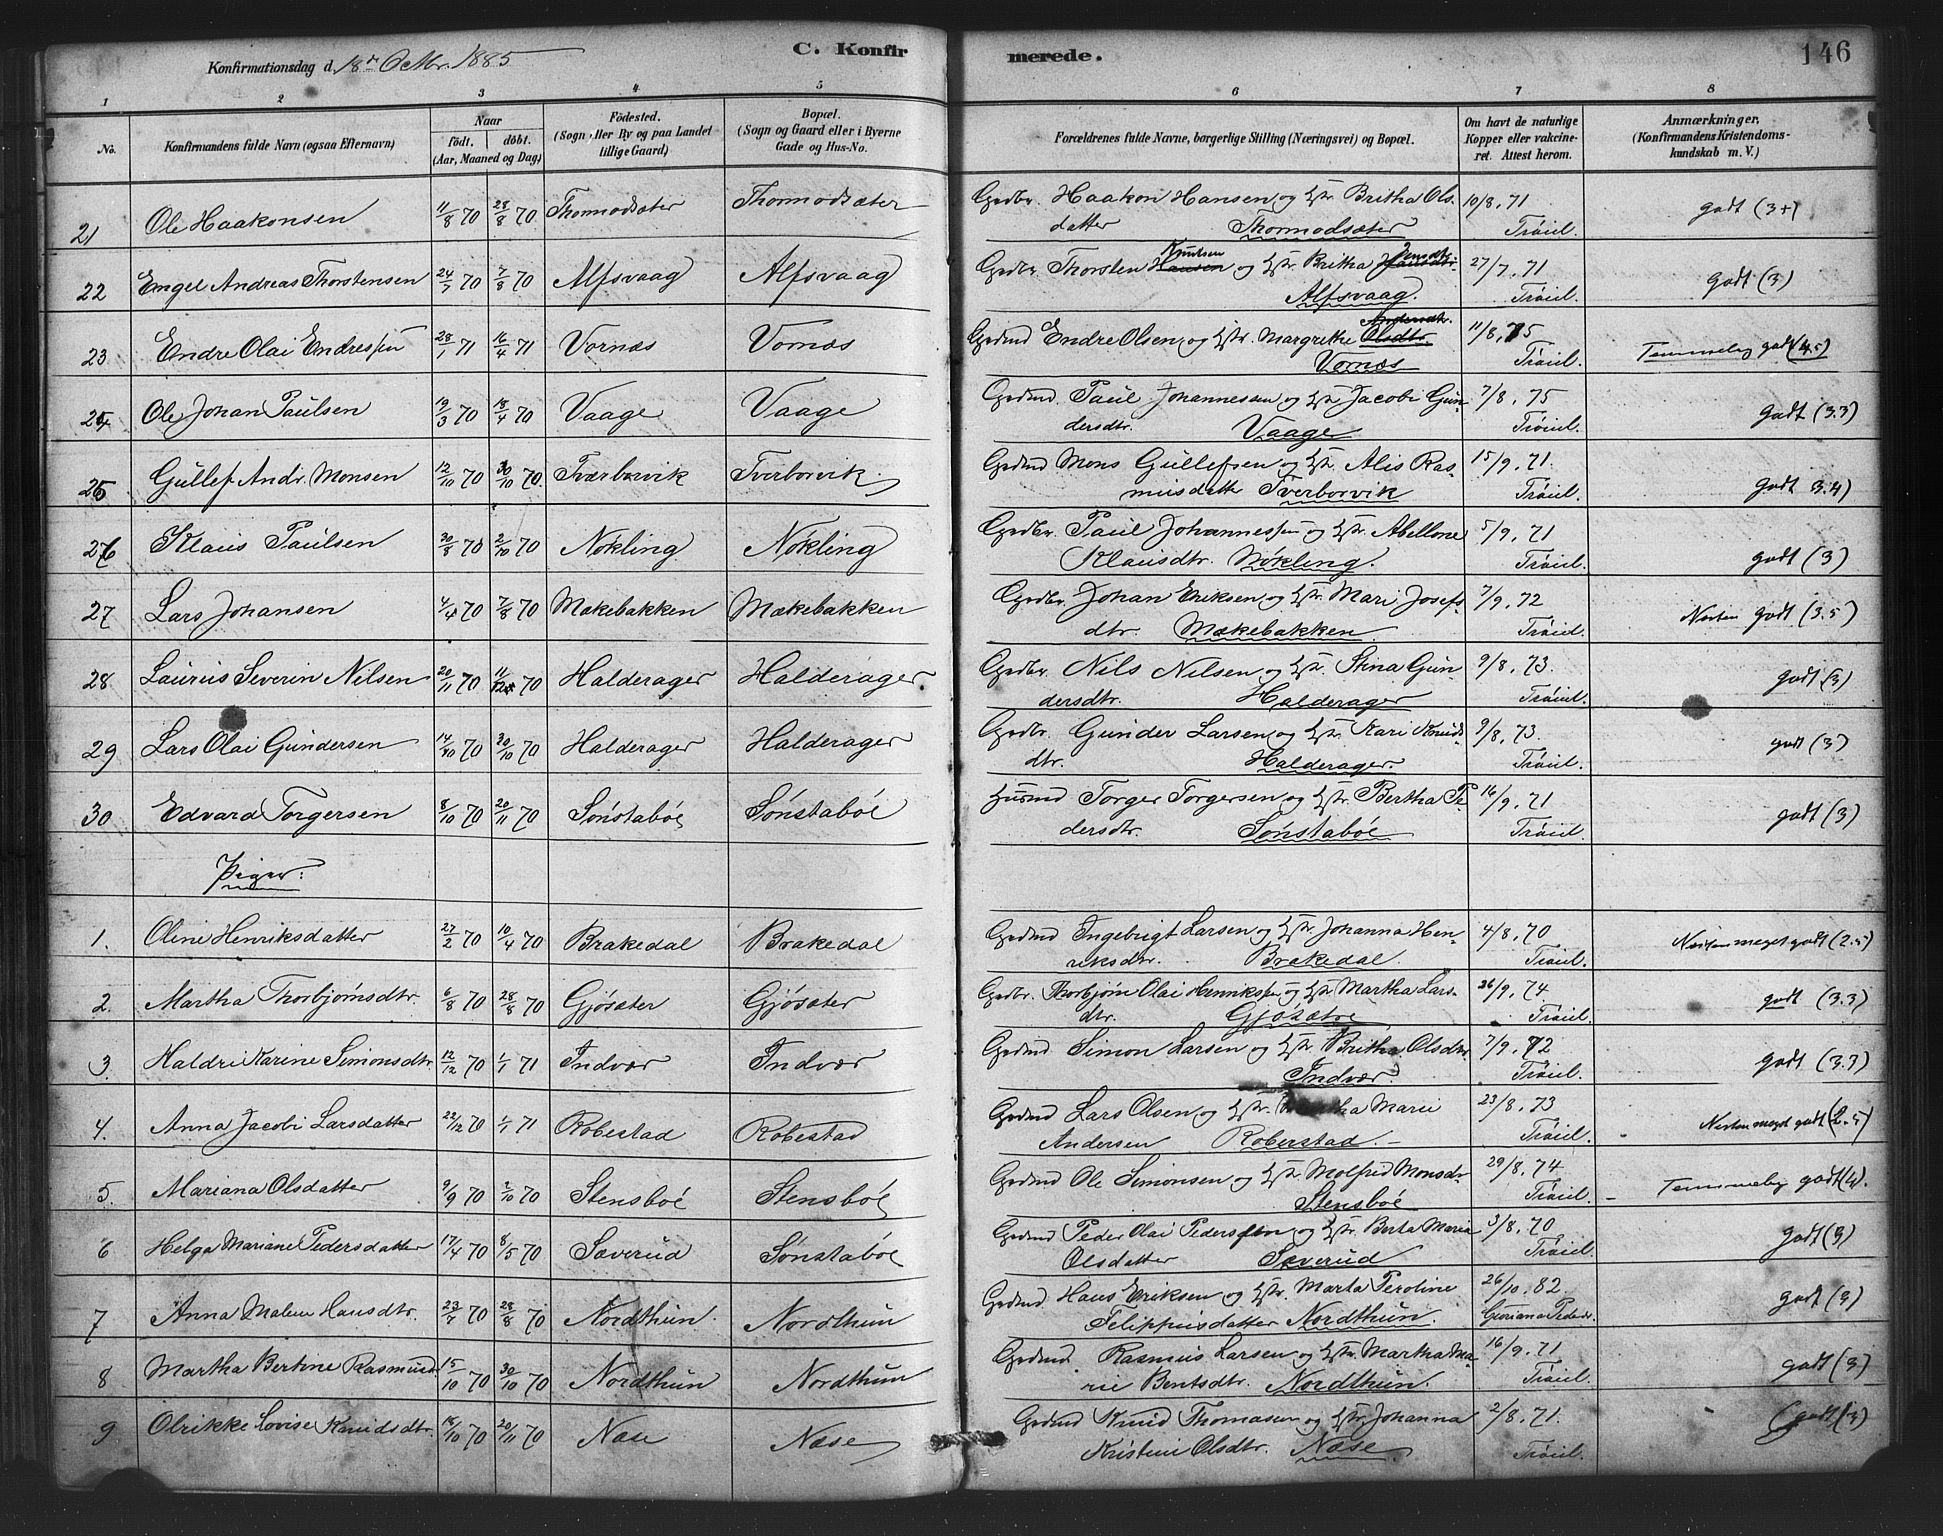 Konfirmationsdag d. 18de Octbr. 1885
C. Konfirmerede.
146
1 2 3 4 5 6 7 8
No. Konfirmandens fulde Navn (ogsaa Efternavn) Naar født. døbt. (Aar, Maaned og Dag) Fødested. (Sogn eller By og paa Landet tillige Gaard) Bopæl. (Sogn og Gaard eller i Byerne Gade og Hus-No. Forældrenes fulde Navne, borgerlige Stilling (Næringsvei) og Bopæl. Om havt de naturlige Kopper eller vakcineret. Attest herom. Anmærkninger, (Konfirmandens Kristendomskundskab m. V.)
21 Ole Haakonsen 11/8 70 28/8 70 Thormodsæter Thormodsæter Grdbr. Haakon Hansen og Hstr. Britha Olsdatter Thormodsæter 10/8. 71 Trøiel. godt (3+)
22 Engel Andreas Thorstensen 24/7 70 7/8 70 Alfsvaag Alfsvaag Grdbr. Thorsten Hansen Knutsen og Hstr. Britha Alfsvaag. 27/7. 71 Trøiel. godt (3)
23 Endre Olai Endressen 28/1 71 16/4 71 Vornæs Vornæs Grdmd Endre Olsen og Hstr. Margrethe Olsdtr. Andersdtr. Vornæs 11/8. 75 Trøiel. Temmelig godt (4.5)
24 Ole Johan Paulsen 19/3 70 18/4 70 Vaage Vaage Grdmd Paul Johannessen og Hstr. Jacobi Gundersdtr. Vaage 7/8. 75 Trøiel. godt (3.3)
25 Gullef Andr. Monsen 12/10 70 30/10 70 Tværborvik Tverborvik Grdmd Mons Gullefsen og Hstr. Alis Rasmusdatter Tverborvik 15/9. 71. Trøiel. godt 3.4)
26 Klaus Paulsen 30/8 70 2/10 70 Nøkling Nøkling Grdbr. Paul Johannessen og Hstr. Abellone Klausdtr. Nøkling. 5/9. 71 Trøiel. godt (3)
27 Lars Johansen 4/4 70 7/8 70 Mækebakken Mækebakken Grdbr. Johan Eriksen og Hstr. Mari Josefsdtr. Mækebakken. 7/9. 72 Trøiel. Nesten godt (3.5)
28 Laurus Severin Nilsen 20/11 70 11/12 70 Halderager Halderager Grdbr. Nils Nilsen og Hstr. Stina Gundersdtr. Halderager 9/8. 73. Trøiel. godt (3)
29 Lars Olai Gundersen 14/10 70 30/10 70 Halderager Halderager Grdbr. Gunder Larsen og Hstr. Kari Knudsdtr. Halderager. 9/8. 73. Trøiel. godt (3)
30 Edvard Torgersen 8/10 70 20/11 70 Sønstabøe Sønstabøe Husmd Torger Torgersen og Hstr. Bertha Pedersdtr. Sønstabøe 16/9. 71 Trøiel. godt (3)
Piger:
1. Oline Henriksdatter 27/2 70 10/4 70 Brakedal Brakedal Grdmd Ingebrigt Larsen og Hstr. Johanna Henriksdtr. Brakedal. 4/8. 70 Trøiel. Nesten meget godt (2.5)
2. Martha Thorbjørnsdtr. 6/8 70 28/8 70 Gjøsæter Gjøsæter Grdbr. Thorbjørn Olai Henrikssen og Hstr. Martha Larsdtr. Gjøsætre 26/9. 74 Trøiel. godt (3.3)
3. Haldri Karine Simonsdtr. 12/12 70 1/1 71 Indvær Indvær Grdmd Simon Larsen og Hstr. Britha Olsdtr Indvær. 7/9. 72 Trøiel. godt (3.3)
4. Anna Jacobi Larsdatter 22/12 70 1/1 71 Robestad Robestad Grdmd Lars Olsen og Hstr. Marie Andersen Roberstad. 23/8. 73 Trøiel. Nesten meget godt (2.5)
5. Mariana Olsdatter 9/9 70 2/10 70 Stensbøe Stensbøe Grdmd Ole Simonsen og Hstr. Molfrid Monsdr. Stensbøe 29/8. 74 Trøiel. Temmelig godt (4).
6 Helga Mariane Pedersdatter 17/4 70 8/5 70 Sæverud Sønstabøe Grdmd Peder Olai Pederssen og Hstr. Berta Maria Olsdatter Sæverud 3/8. 70 Trøiel. godt (3)
7 Anna Malene Hansdtr. 23/7 70 28/8 70 Nordthun. Nordthun Grdmd. Hans Eriksen og Hstr. Marta Peroline Filippusdatter Nordthun. 26/10. 82 Gjoriana Pedersdr. godt (3)
8 Martha Bertine Rasmusd. 15/10 70 30/10 70 Nordthun Nordthun Grdmd. Rasmus Larsen og Hstr. Martha Marie Bentsdtr. Nordthun. 16/9. 71 Trøiel. godt (3)
9 Olrikke Lovise Knudsdtr. 18/10 70 20/11 70 Næse Næse Grdmd Knud Thomasen og Hstr. Johanna Kristine Olsdtr. Næse. 2/8. 71. Trøiel. (godt (3)